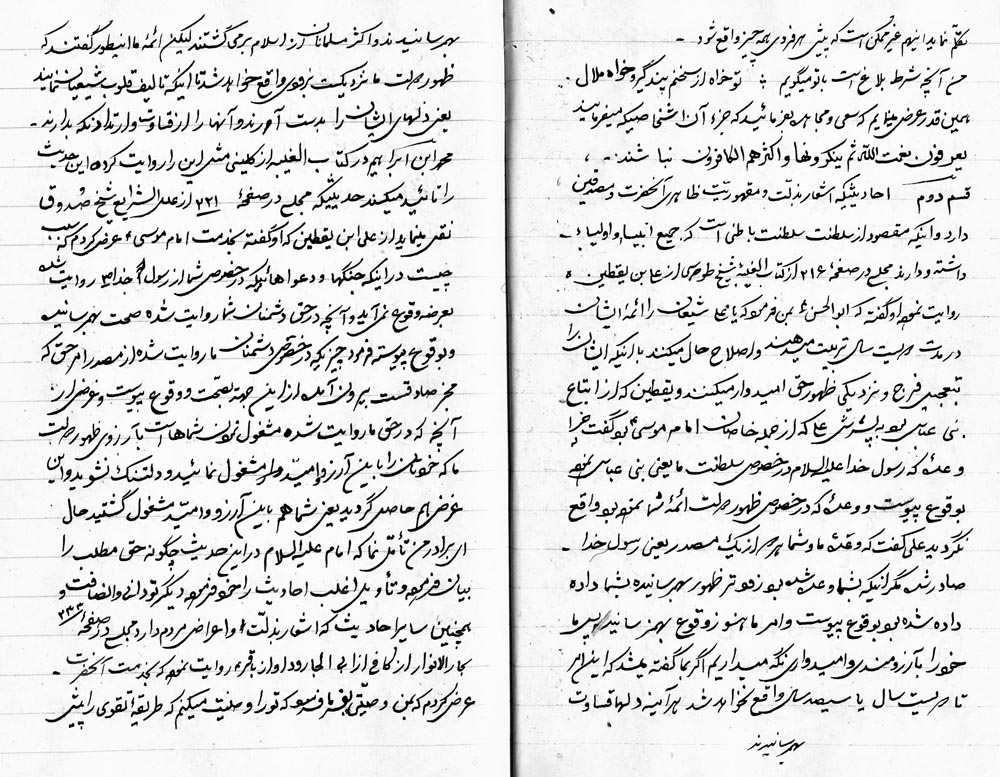 تکلم نماید اینهم غیر ممکن است که پیش هر فردی همه چیز واقع شود -
من آنچه شرط بلاغ است با تو میگویم ؛ تو خواه از سخنم پند گیر و خواه ملال
همین قدر عرض مینمایم که سعی و مجاهده بفرمائید که جزء آن اشخاصیکه میفرمایند
یعرفون نعمت الله ثم ینکرونها و اکثرهم الکافرون نباشند -
قسم دوم احادیثیکه اشعار بذلت و مقهوریت ظاهری آنحضرت و مصدقین
دارد و اینکه مقصود از سلطنت سلطنت باطنی است که جمیع انبیا و اولیاء -
داشته و دارند مجلسی در صفحهٔ ۲۱۶ از کتاب الغیبة شیخ طوسی از علی بن یقطین
روایت نموده او گفته که ابوالحسن ع بمن فرمود که یا علی شیعیان را ائمهٔ ایشان
در مدت دویست سال تربیت میدهند و اصلاح حال میکنند باینکه ایشان را
بتعجیل فرج و نزدیکی ظهور حق امیدوار میکنند و یقطین که از اتباع
بنی عباس بود به پسرش علی که از جمله خاصان امام موسی ع بود گفت چرا
وعدهٔ که رسول خدا علیه السلام در خصوص سلطنت ما یعنی بنی عباس نموده
بوقوع پیوست و وعدهٔ که در خصوص ظهور دولت ائمهٔ شما نموده بود واقع
نگردید علی گفت که وعدهٔ ما و شما هر دو از یک مصدر یعنی رسول خدا -
صادر شده مگر اینکه بشما وعده شده بود زودتر ظهور بهم رسانیده بشما داده
داده شده بود بوقوع پیوست و امر ما هنوز وقوع بهم نرسانید پس ما
خود را بآرزومندی و امیدواری نگه میداریم اگر بما گفته میشد که این امر
تا دویست سال یا سیصد سال واقع نخواهد شد هر آینه دلها قساوت
بهم رسانیدند
بهم رسانیدند و اکثر مسلمانان از اسلام برمی گشتند لیکن ائمهٔ ما اینطور گفتند که
ظهور دولت ما نزدیکست بزودی واقع خواهد شد تا اینکه تالیف قلوب شیعیان نمایند
یعنی دلهای ایشان را بدست آورند و آنها را از قساوت و ارتداد نگه بدارند -
محمد ابن ابراهیم در کتاب الغیبة از کلینی مثل این را روایت کرده این حدیث
را تائید میکند حدیثیکه مجلسی در صفحهٔ ۲۲۱ از علل الشرایع شیخ صدوق
نقل مینماید از علی ابن یقطین که او گفته بخدمت امام موسی ع عرض کردم که سبب
چیست در اینکه جنگها و دعواهائیکه در خصوص شما از رسول خدا ص روایت شده
بعرضهٔ وقوع نمی آید و آنچه در حق دشمنان شما روایت شده صحت بهم رسانیده
و بوقوع پیوسته فرمود چیزیکه در خصوص دشمنان ما روایت شده از مصدر امر حق که
مخبر صادقست بیرون آمده از این جهة بصحت و وقوع پیوست و غرض از
آنچه که در حق ما روایت شده مشغول نمودن شماها است بآرزوی ظهور دولت
ما که خودتان را باین آرزو و امید مشغول نمائید و دلتنگ نشوید و این
غرض هم حاصل گردید یعنی شما هم باین آرزو و امید مشغول گشتید حال
ای برادر من تأمل نما که امام علیه السلام در این حدیث چگونه حق مطلب را
بیان فرموده و تأویل اغلب احادیث را خود فرموده دیگر تو دانی و انصافت و
همچنین سایر احادیث که اشعار بذلت و اعراض مردم دارد مجلسی در صفحهٔ ۲۳۳
بحارالانوار از کافی از ابی الجارود او از باقر ع روایت نموده که بخدمت آنحضرت -
عرض کردم که بمن وصیتی بفرما فرمود که تو را وصیت میکنم که طریقهٔ التقوی را پیش